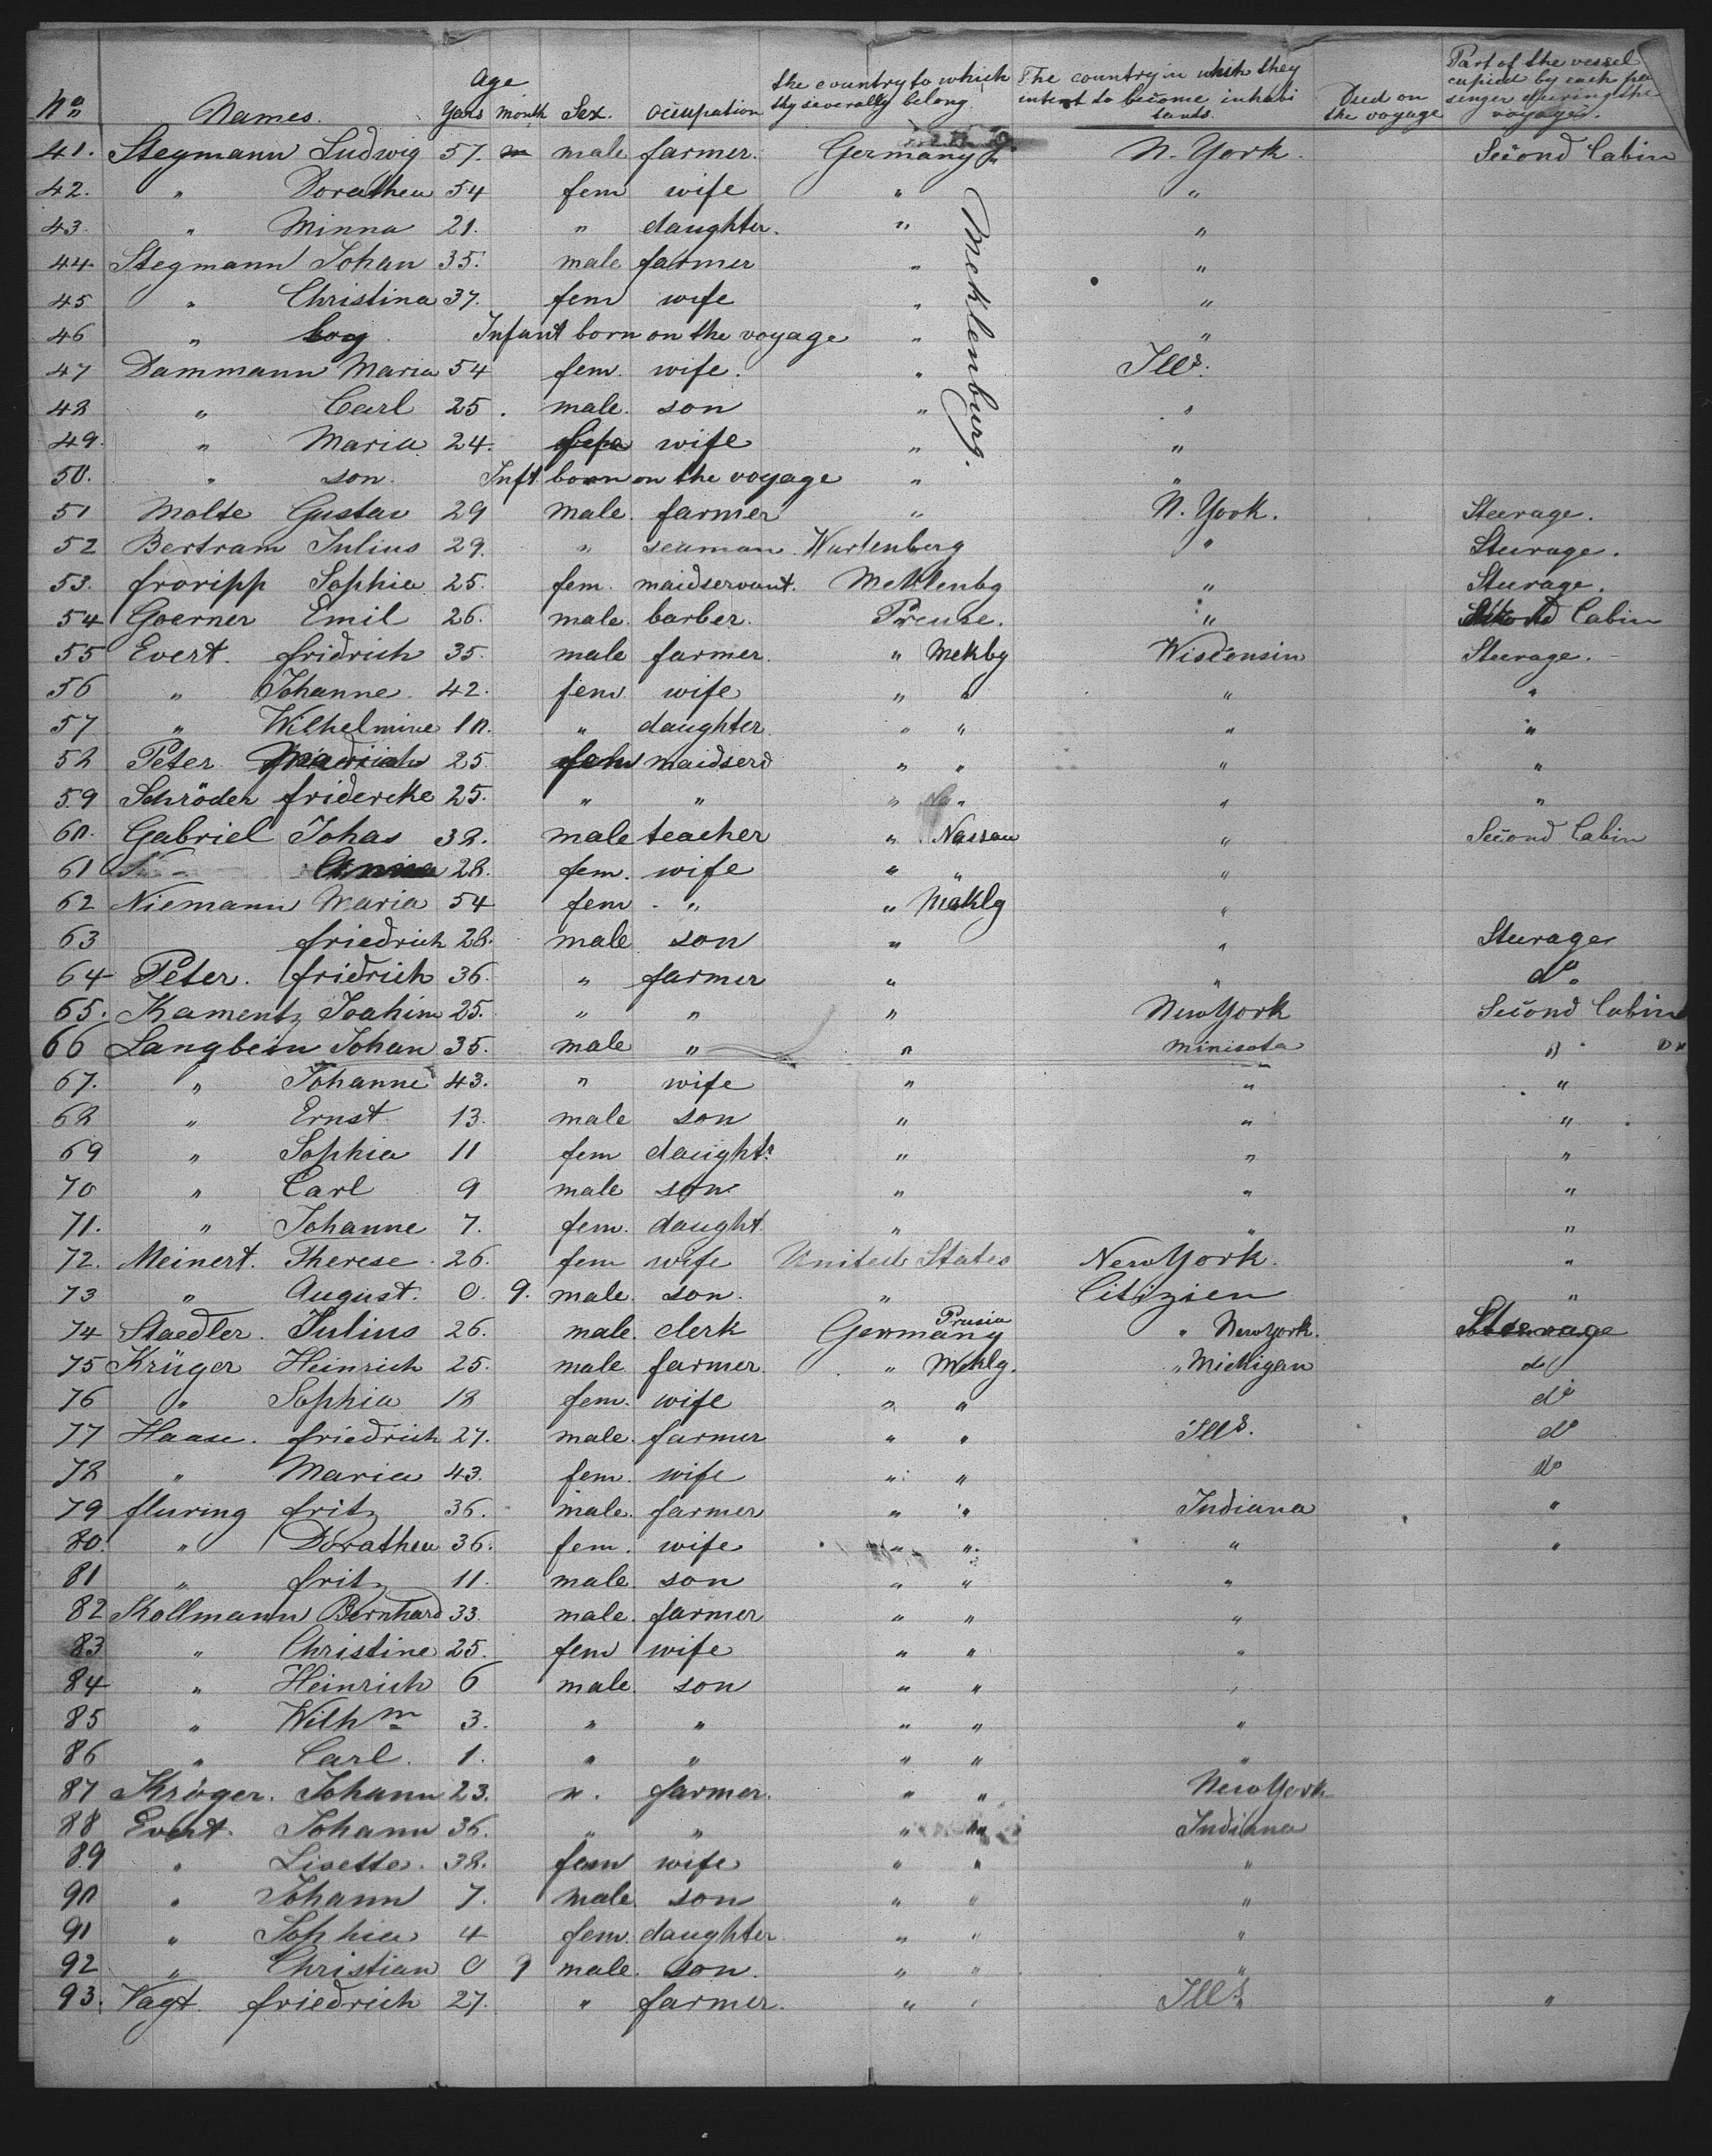 No. Names. Age Years month Sex. Occupation the country to which thy severally belong The country in which they intent to become inhabi tants. Died on the voyage Part of the vessel cupied by each pa senger during the voyage.
41. Stegmann Ludwig 57. m male farmer. Germany N. York. Second Cabin
42. " Dorathea 54 fem wife " "
43. " Minna 21. " daughter. " "
44 Stegmann Johan 35. male farmer " "
45 " Christina 37. fem wife " "
46 " boy. Infant born on the voyage " "
Mecklenburg.
47 Dammann Maria 54 fem. wife. " Ills.
48 " Carl 25. male. son " "
49. " Maria 24. wife " "
50. " son. Inft born on the voyage " "
51 Molte Gustav 29 male. farmer " N. York. Steerage.
52 Bertram Julius 29. " seaman. Wurtenberg " Steerage.
53. froripp Sophia 25. fem. maidservant. Meklenbg " Steerage.
54 Goerner Emil 26. male. barber. " Cabin
55 Evert. fridrich 35. male farmer. " Mekbg Wisconsin Steerage.
56 " Johanne. 42. fem wife " " " "
57 " Wilhelmine 10. " daughter " " " "
58 Peter 25 fem maidserd " " " "
59 Schröder fridercke 25. " " " " " "
60. Gabriel Johas 38. male teacher " Nassau " Second Cabin
61 Anna 28. fem. wife " " "
62 Niemann Maria 54 fem. " " Meklg "
63 friedrich 28. male son " " Steerage
64 Peter. fridrich 36. " farmer " " do.
65. Kamentz Joahim 25. " " " New York Second Cabin
66 Langbein Johan 35. male " " minisota " "
67. " Johanne 43. " wife " " "
68 " Ernst 13. male son " " "
69 " Sophia 11 fem daughtr " " "
70 " Carl 9 male son " " "
71. " Johanne 7. fem. daught. " " "
72. Meinert. Therese. 26. fem wife United States New York. "
73 " August. 0. 9. male. son. " Citizien "
74 Staedler. Julius 26. male. clerk Germany Prusia " New York. Steerage
75 Krüger Heinrich 25. male farmer. " Meklg. " Michigan do
76 " Sophia 18 fem. wife " " do
77 Haase. friedrich 27. male. farmer " " Ills. do
78 " Maria 43. fem. wife " " do
79 fluring fritz 36. male. farmer " " Indiana "
80. " Dorathea 36. fem. wife " " " "
81 " fritz 11. male. son " " "
82 Kollmann Bernhard 33. male. farmer " " "
83 " Christine 25. fem wife " " "
84 " Heinrich 6 male. son " " "
85 " Wilhm 3. " " " " "
86 " Carl. 1. " " " " "
87 Kröger. Johann 23. ". farmer. " " New York
88 Evert. Johann 36. " " " " Indiana
89 " Lisette. 38. fem wife " " "
90 " Johann 7. male. son " " "
91 " Sophia 4 fem. daughter " " "
92 " Christian 0 9 male. son. " " "
93. Vagt. friedrich 27. " farmer. " " Ills. "